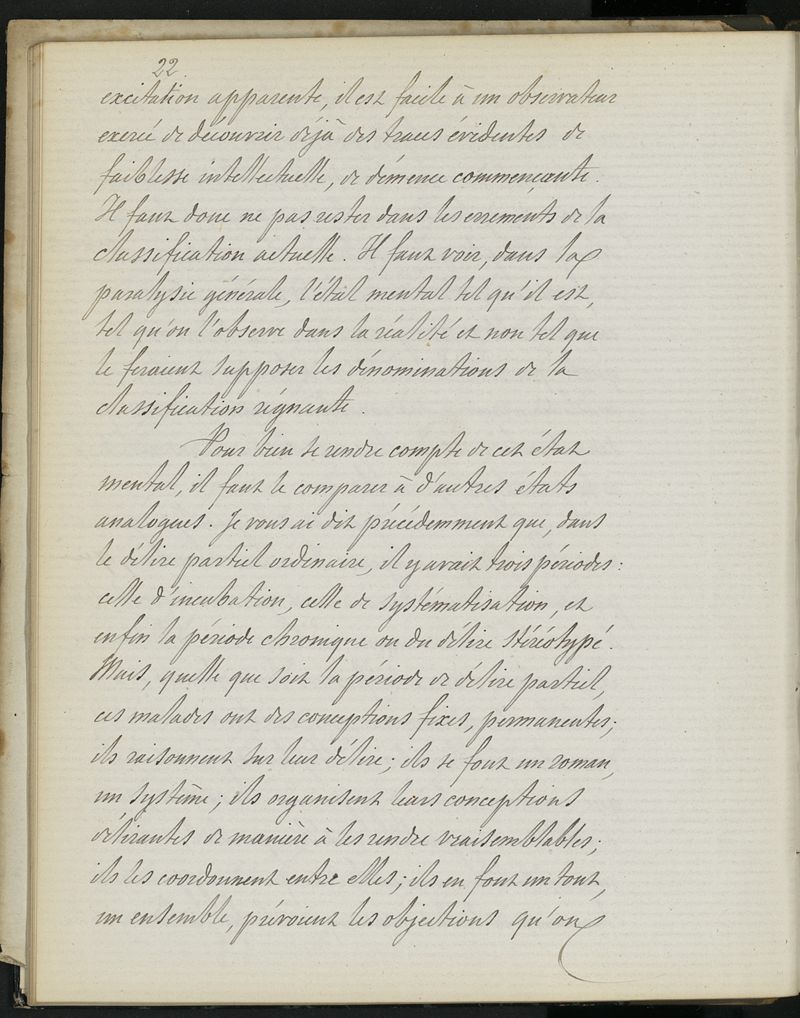 22
excitation apparente, il est facile à un observateur
exercé de découvrir déjà des traces évidentes de
faiblesse intellectuelle, de démence commençante.
Il faut donc ne pas rester dans les errements de la
classification actuelle. Il faut voir, dans la
paralysie générale, l'état mental tel qu'il est,
tel qu'on l'observe dans la réalité et non tel que
le feraient supposer les dénominations de la
classification régnante.
Pour bien se rendre compte de cet état
mental, il faut le comparer à d'autres états
analogues. Je vous ai dit précédemment que, dans
le délire partiel ordinaire, il y avait trois périodes:
celle d'incubation, celle de systématisation, et
enfin la période chronique ou du délire stéréotypé.
Mais, quelle que soit la période de délire partiel,
ces malades ont des conceptions fixes, permanentes;
ils raisonnent sur leur délire; ils se font un roman,
un système; ils organisent leurs conceptions
délirantes de manière à les rendre vraisemblables;
ils les coordonnent entre elles; ils en font un tout,
un ensemble, prévoient les objections qu'on